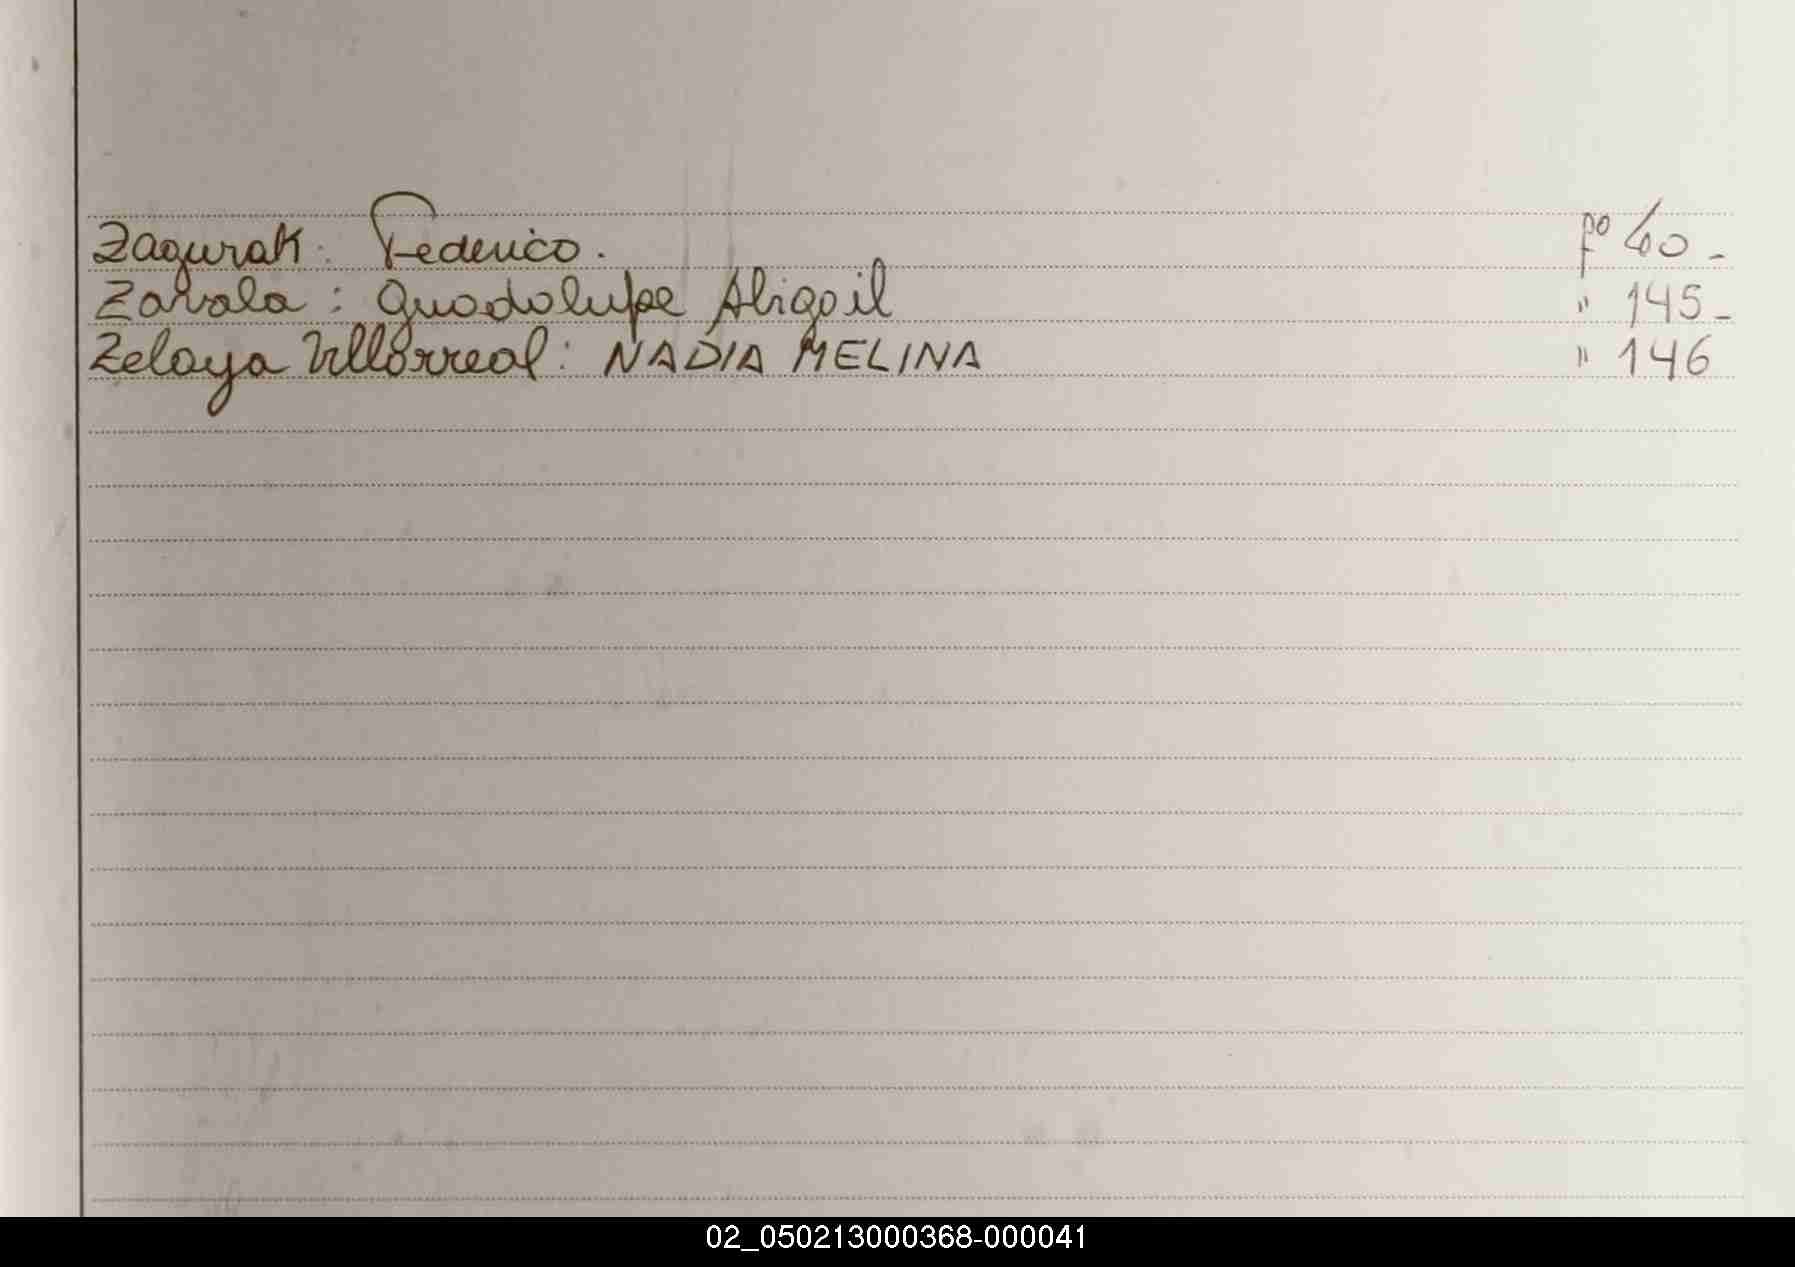 Zagurak: Federico. fº 60-
Zavala: Guadalupe Abigail " 145-
Zelaya Villarreal: NADIA MELINA " 146
02_050213000368-000041